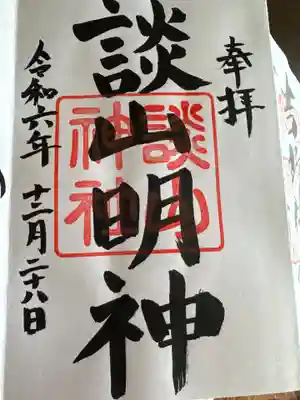 奉拝
談山明神
談山
神社
令和六年 十二月二十八日